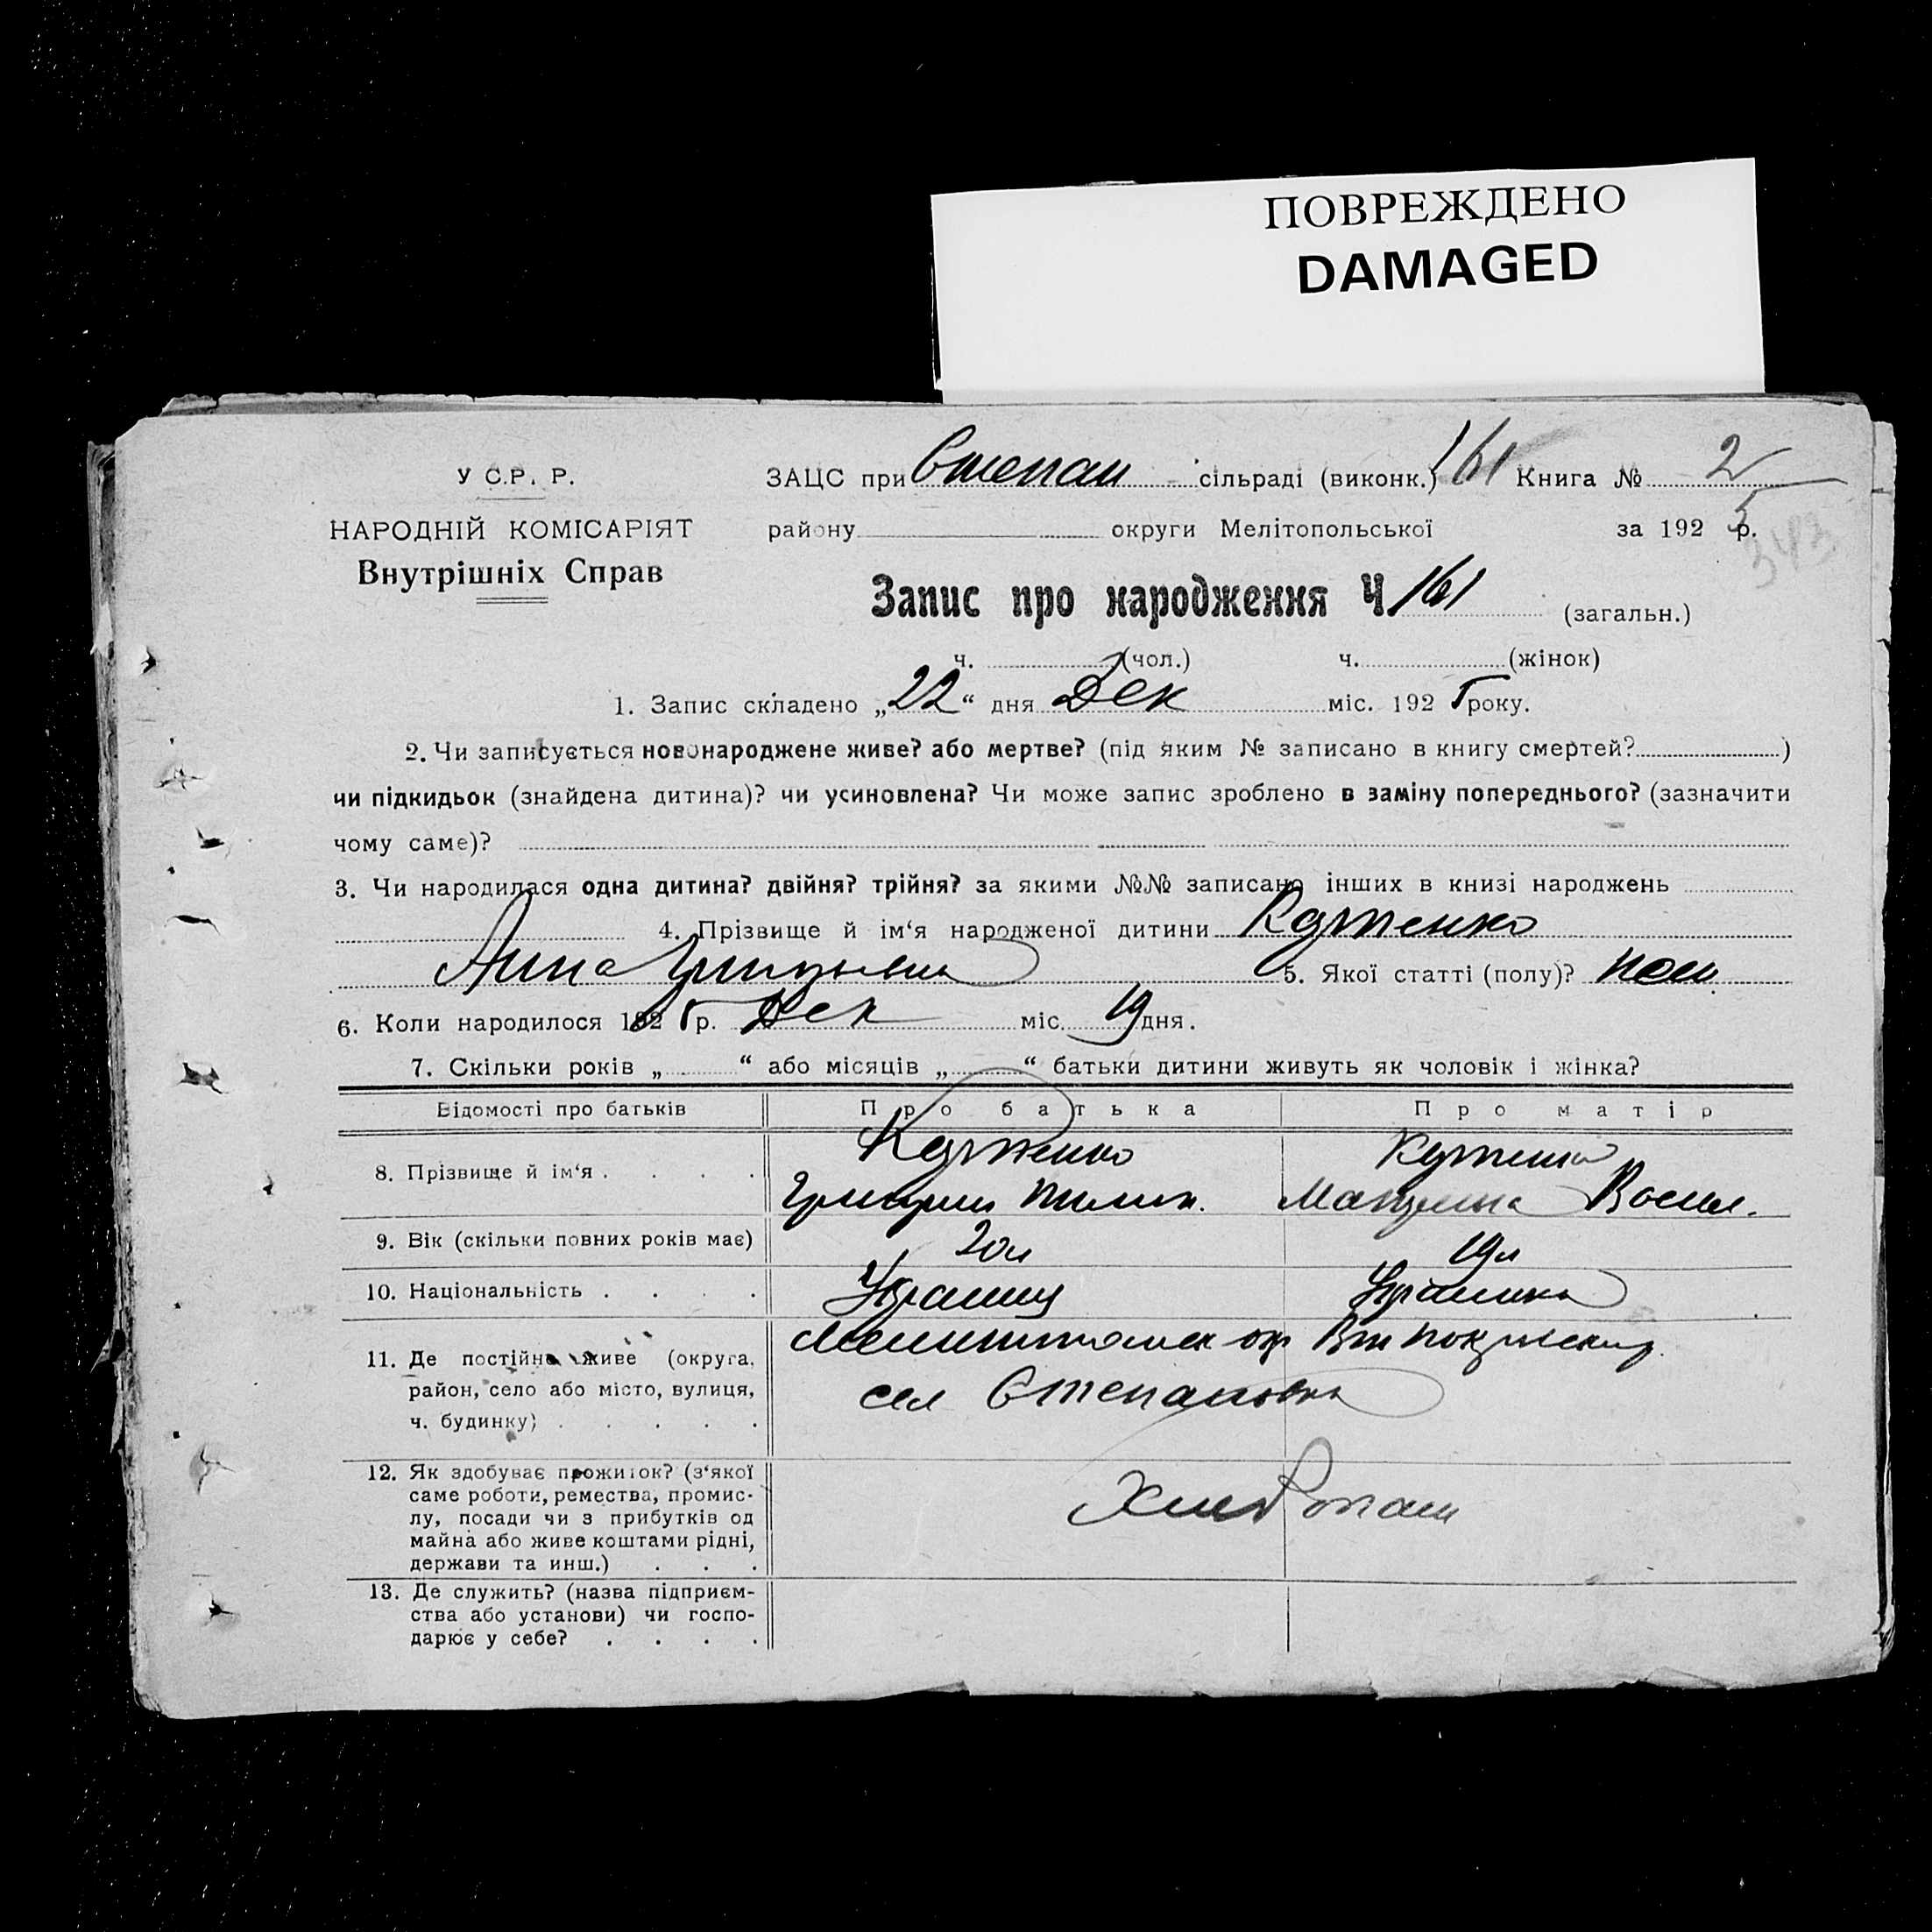 ПОВРЕЖДЕНО
DAMAGED
У С.Р. Р.
НАРОДНІЙ КОМІСАРІЯТ
Внутрішніх Справ
ЗАЦС при Степан сільраді (виконк.) 161 Книга № 2
району округи Мелітопольської за 192 5 р.
343
Запис про народження Ч 161 (загальн.)
ч. (чол.) ч. (жінок)
1. Запис складено „22“ дня Дек міс. 192 5 року.
2. Чи записується новонароджене живе? або мертве? (під яким № записано в книгу смертей? )
чи підкидьок (знайдена дитина)? чи усиновлена? Чи може запис зроблено в заміну попереднього? (зазначити
чому саме)?
3. Чи народилася одна дитина? двійня? трійня? за якими №№ записано інших в книзі народжень
4. Прізвище й ім‘я народженої дитини
Анна 5. Якої статті (полу)?
6. Коли народилося 192 5 р. Дек міс. 19 дня.
7. Скільки років „ “ або місяців „ “ батьки дитини живуть як чоловік і жінка?
Відомості про батьків Про батька Про матір
8. Прізвище й ім‘я . . . .
9. Вік (скільки повних років має) 20л 19л
10. Національність . . . .
11. Де постійно живе (округа,
район, село або місто, вулиця,
ч. будинку) . . . . .
сел Степановка
12. Як здобуває прожиток? (з‘якої
саме роботи, ремества, промис-
лу, посади чи з прибутків од
майна або живе коштами рідні,
держави та инш.) . . .
Хлебопаш
13. Де служить? (назва підприєм-
ства або установи) чи госпо-
дарює у себе? . . . .